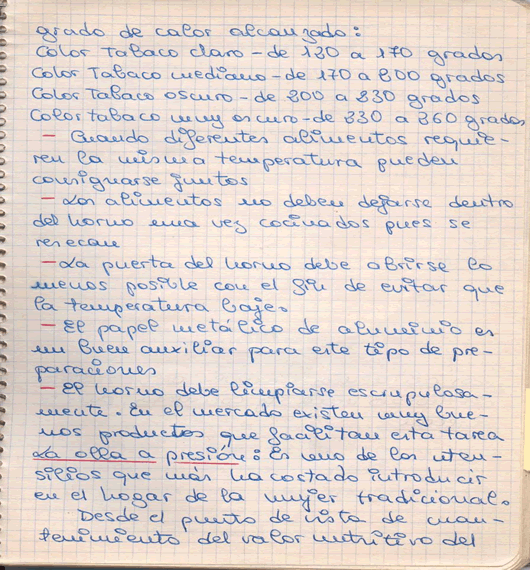 grado de calor alcanzado:
Color Tabaco claro - de 130 a 170 grados
Color Tabaco mediano - de 170 a 200 grados
Color Tabaco oscuro - de 200 a 230 grados
Color tabaco muy oscuro - de 230 a 260 grados
- Cuando diferentes alimentos requie-
ren la misma temperatura pueden
consignarse juntos
- Los alimentos no deben dejarse dentro
del horno una vez cocinados pues se
resecan
- La puerta del horno debe abrirse lo
menos posible con el fin de evitar que
la temperatura baje.
- El papel metálico de aluminio es
un buen auxiliar para este tipo de pre-
paraciones
- El horno debe limpiarse escrupulosa-
mente. En el mercado existen muy bue-
nos productos que facilitan esta tarea
La olla a presión: Es uno de los uten-
silios que más ha costado introducir
en el hogar de la mujer tradicional.
Desde el punto de vista de man-
tenimiento del valor nutritivo del